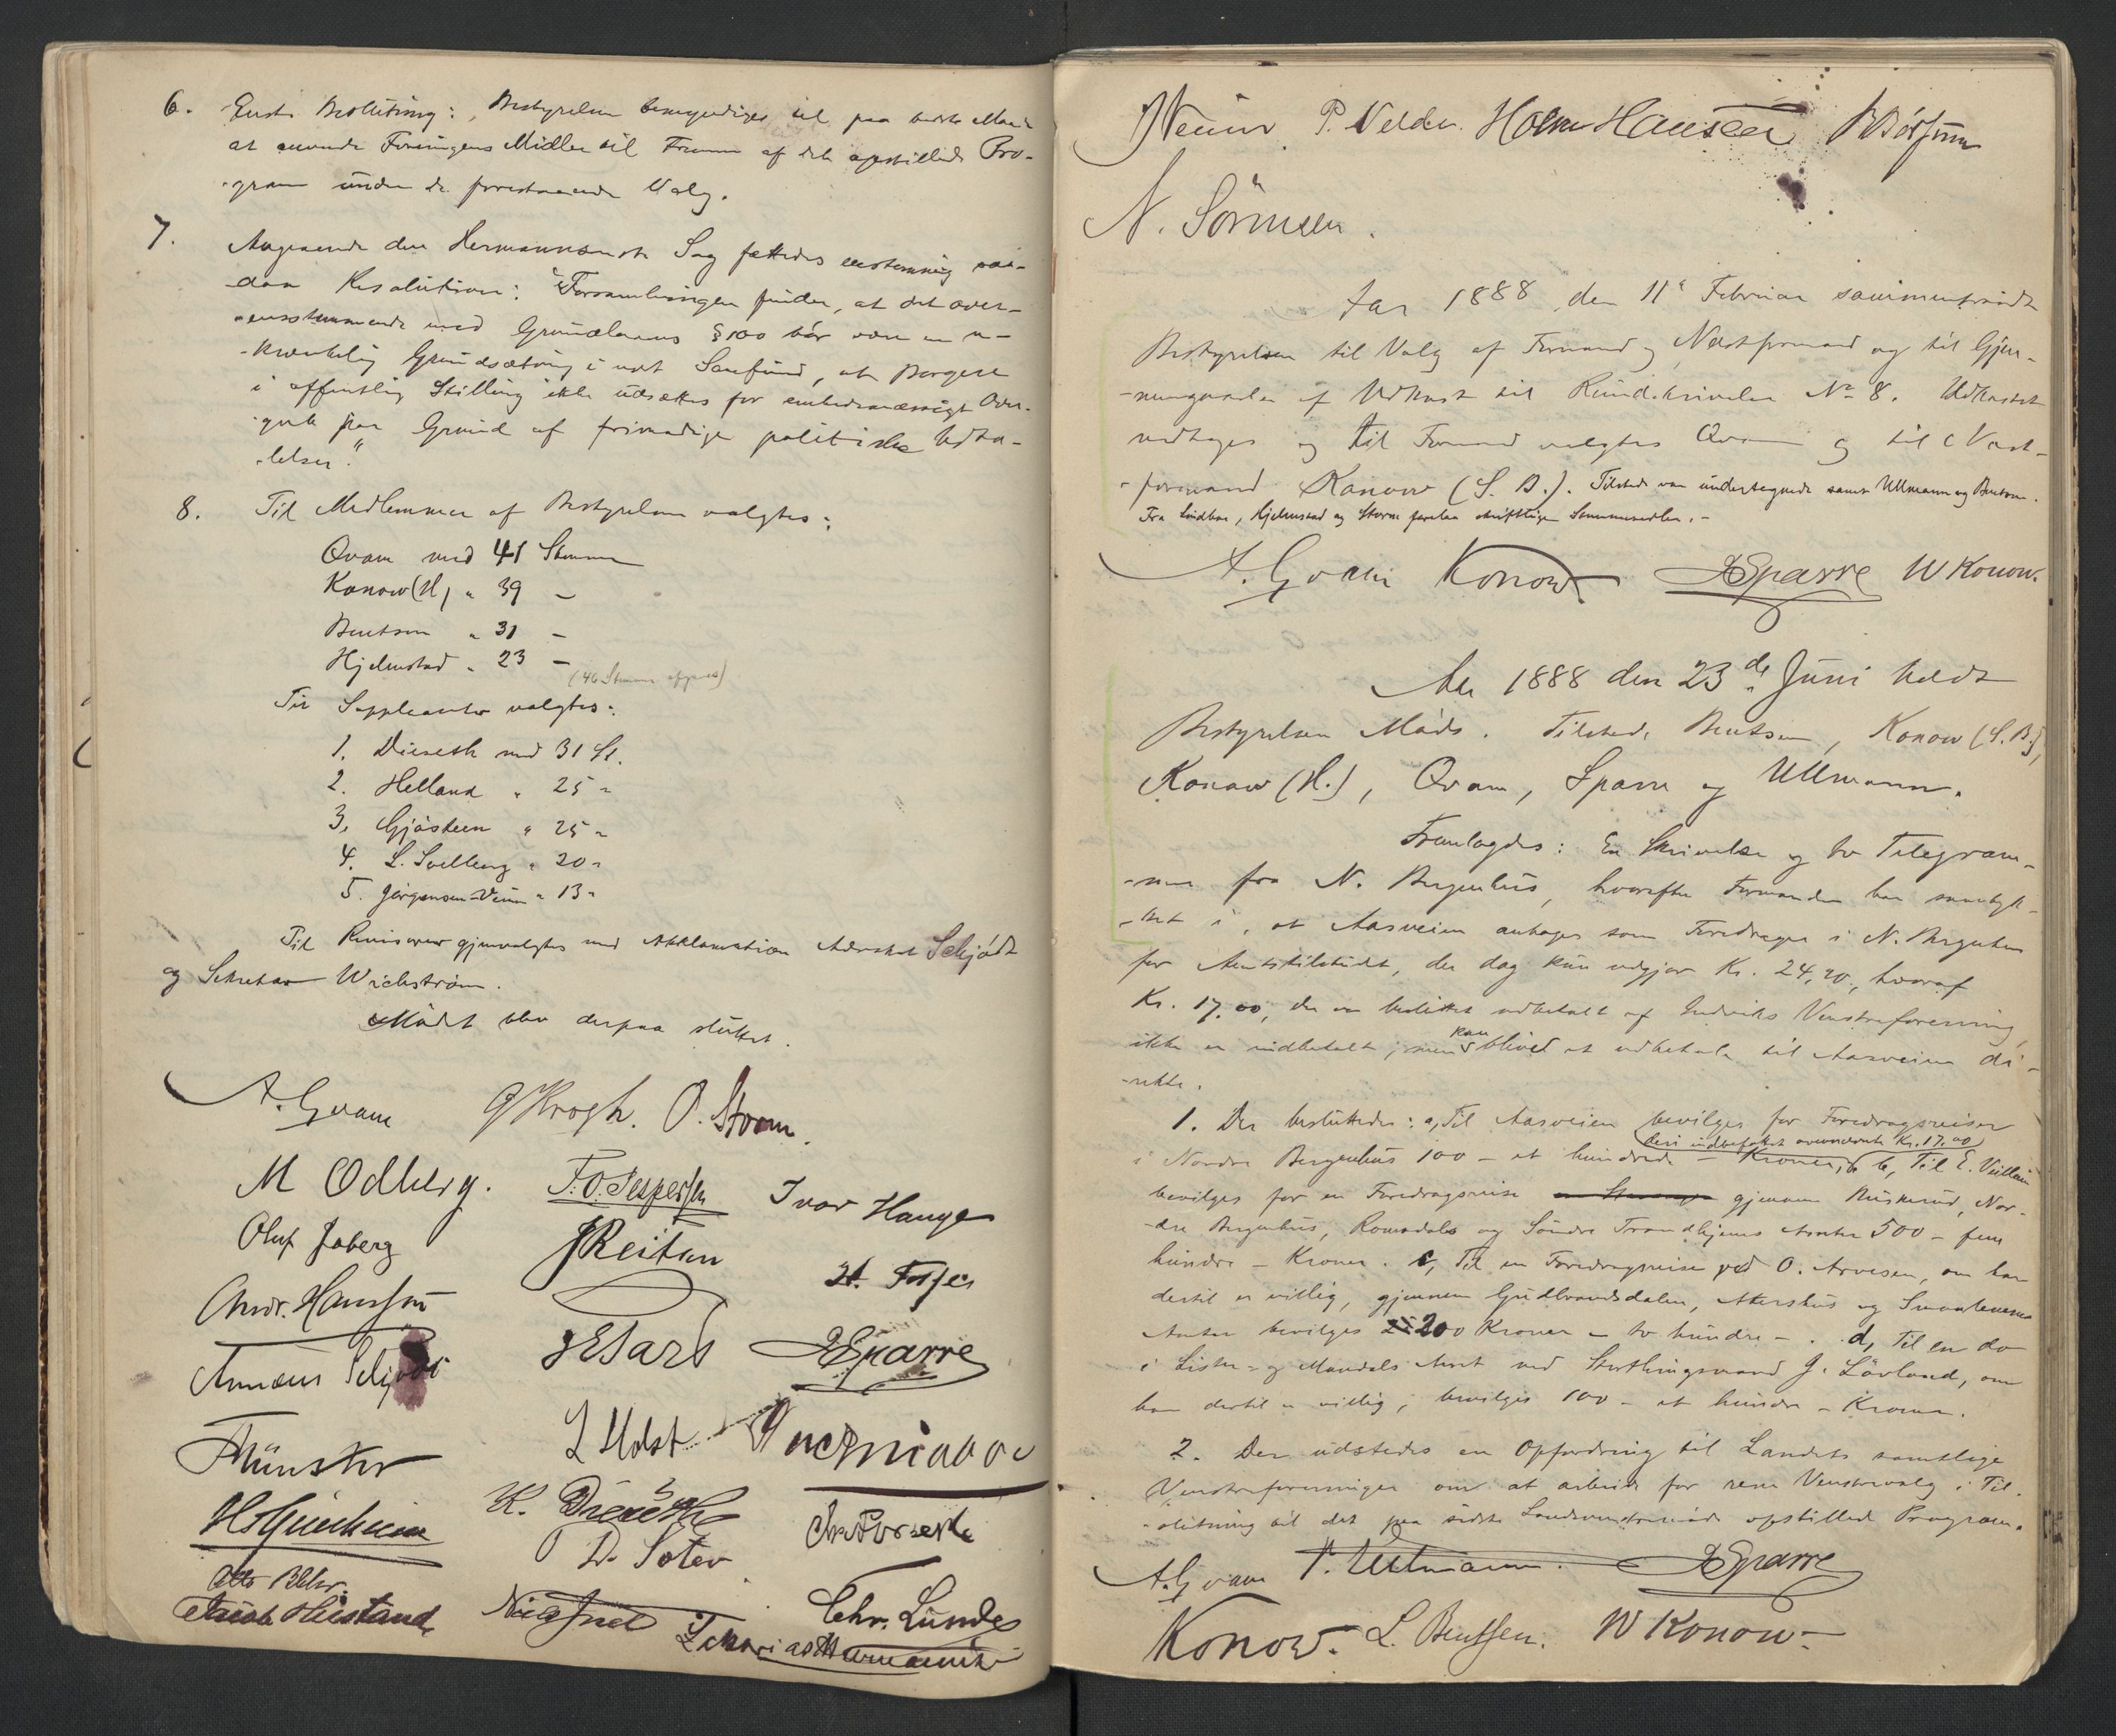 6. Enst. Beslutning: Bestyrelsen bemyndiges til paa bedste Maade
at anvende Foreningens Midler til Fremme af det opstillede Pro-
-gram under de forestaaende Valg.
7. Angaaende den Hermannsenske Sag fattedes enstemmig saa-
-dan Resolution: "Forsamlingen finder, at det over-
-ensstemmende med Grundlovens § 100 bør være en u-
-krænkelig Grundsætning i vort Samfund, at Borgere
i offentlig Stilling ikke udsættes for embedsmæssigt Over-
-greb paa Grund af frimodige politiske Udta-
-lelser."
8. Til Medlemmer af Bestyrelsen valgtes:
Qvam med 41 Stemmer
Konow (H) " 39 —
Bentsen " 31 —
Hjelmstad " 23 —
(46 Stemmer afgivne)
Til Suppleanter valgtes:
1. Dieseth med 31 St.
2. Helland " 25 "
3. Gjøsteen " 25 "
4. L. " 20 "
5. Jørgensen-Vein " 13 "
Til Revisorer gjenvalgtes med Akklamation Advokat Schjødt
og Sekretær Wichstrøm.
Mødet blev derpaa sluttet.
A. Qvam G Krogh. O. Strøm.
M Odberg. F. O. Jespersen Ivar Hauge
Oluf Jaberg J Reitan H. Foyn
Andr. Hansen J E Sars Sparre
Annæus Schjødt
Münster L Holst
K. Dieseth
D. Soter
Otto Blehr. Chr. Lunde
Jacob
J Vein P. Velde. Holm Hansen
N. Sørensen.
Aar 1888 den 11te Februar sammentraadte
Bestyrelsen til Valg af Formand og Næstformand og til Gjen-
-nemgaaelse af Udkast til Rundskrivelse No 8. Udkastet
vedtoges og til Formand valgtes Qvam og til Næst-
-formand Konow (S. B.). Tilstede var undertegnede samt Ullmann og Bentsen.
Fra Lindboe, Hjelmstad og Storm forelaa skriftlige Stemmesedler. —
A. Qvam Konow. Sparre W Konow.
Aar 1888 den 23de Juni holdt
Bestyrelsen Møde. Tilstede Bentsen, Konow (S. B.),
Konow (H.), Qvam, Sparre og Ullmann.
Fremlagdes: En Skrivelse og to Telegram-
-mer fra N. Bergenhus, hvorefter Formanden har samtyk-
-ket i, at Aasveien antages som Foredrager i N. Bergenhus
for Amtstilskudt, der dog kun udgjør Kr. 24,20, hvoraf
Kr. 17.00, der er besluttet udbetalt af Indviks Venstreforening,
ikke er indbetalt, men kan blive at udbetale til Aasveien di-
-rekte.
1. Der besluttedes: a, Til Aasveien bevilges for Foredragsreiser
i Nordre Bergenhus 100 — et hundrede — Kroner, (deri indbefattet ovennævnte Kr. 17.00) b, Til E. Vullum
bevilges for en Foredragsreise gjennem Buskerud, Nor-
-dre Bergenhus, Romsdals og Søndre Trondhjems Amter 500 — fem
hundre — Kroner. c, Til en Foredragsreise ved O. Arvesen, om han
dertil er villig, gjennem Gudbrandsdalen, Akershus og Smaalenenes
Amter bevilges 200 Kroner — to hundre —. d, Til en do
i Lister- og Mandals Amt ved Storthingsmand J. Løvland, om
han dertil er villig, bevilges 100 — et hundre — Kroner.
2. Der udstedes en Opfordring til Landets samtlige
Venstreforeninger om at arbeide for rene Venstrevalg i Til-
-slutning til det paa sidste Landsvenstremøde opstillede Program.
A. Qvam V. Ullmann. Sparre
Konow. L. Bentsen. W Konow.